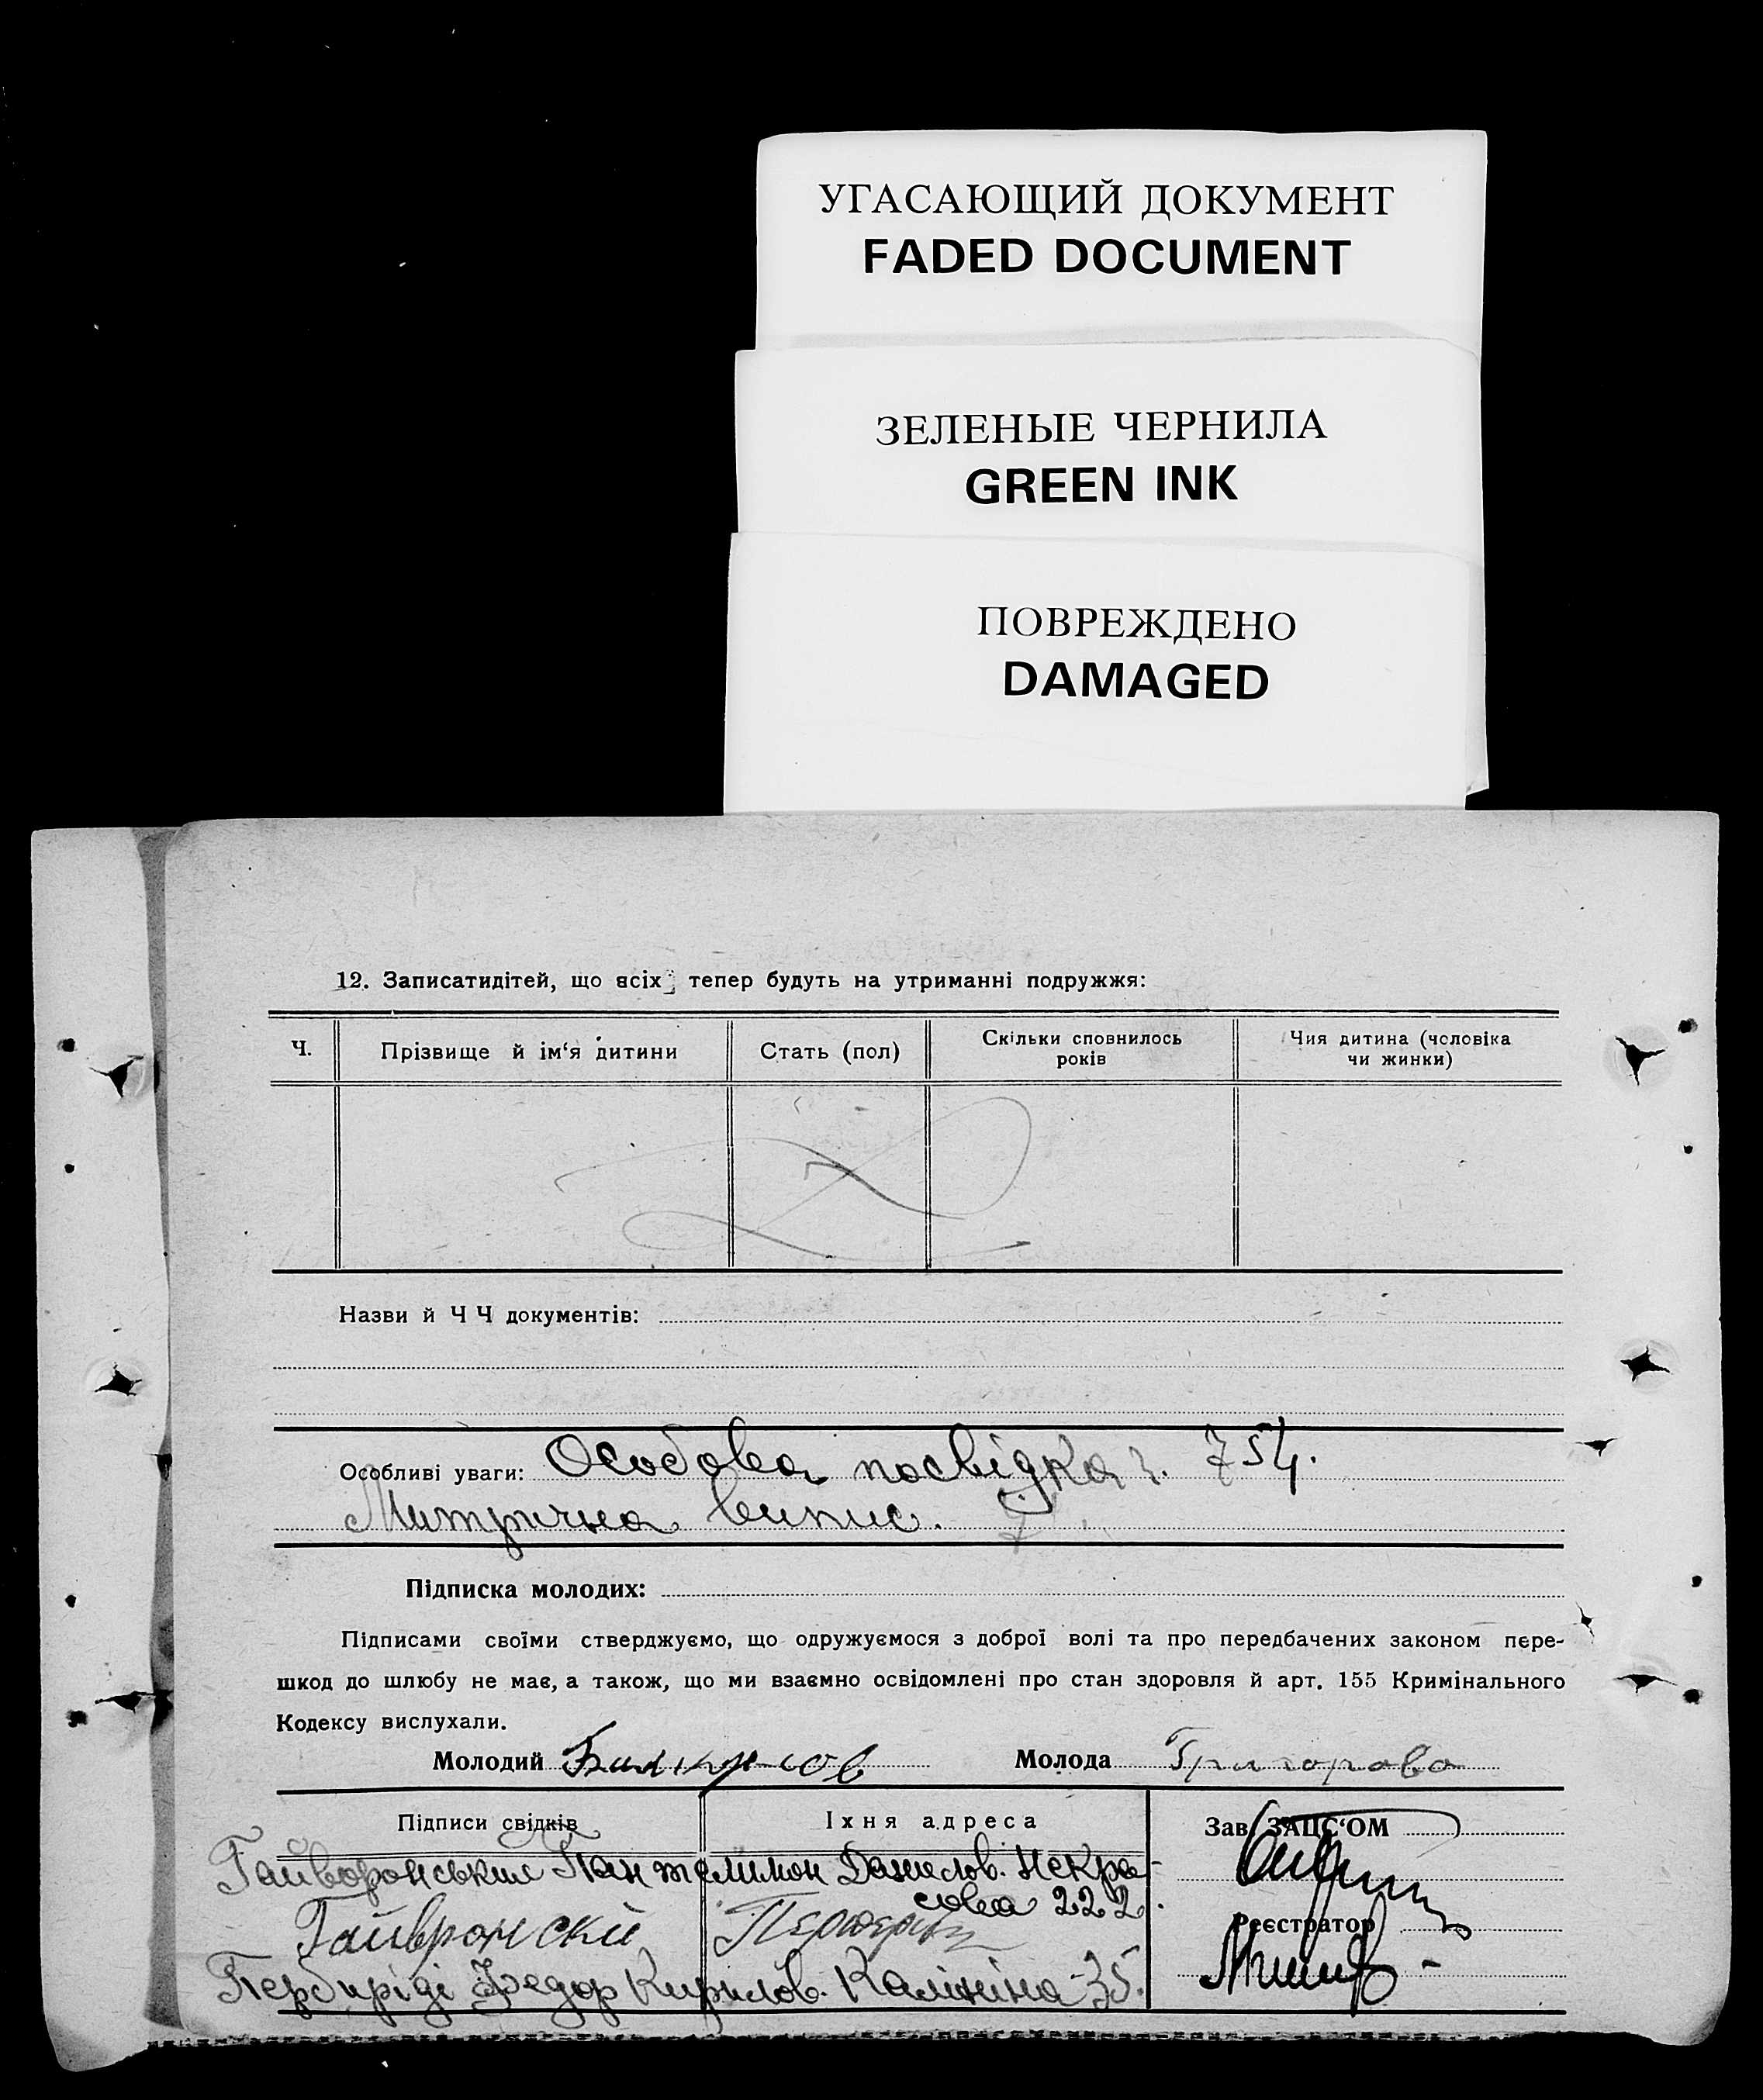 УГАСАЮЩИЙ ДОКУМЕНТ
FADED DOCUMENT
ЗЕЛЕНЫЕ ЧЕРНИЛА
GREEN INK
ПОВРЕЖДЕНО
DAMAGED
12. Записатидітей, що всіх тепер будуть на утриманні подружжя:
Ч. Прізвище й ім'я дитини Стать (пол) Скільки сповнилось років Чия дитина (чоловіка чи жинки)
Назви й Ч Ч документів:
Особливі уваги: Особова посвідка ч. 754.
Митрична випис.
Підписка молодих:
Підписами своїми стверджуємо, що одружуємося з доброї волі та про передбачених законом пере-
шкод до шлюбу не має, а також, що ми взаємно освідомлені про стан здоровля й арт. 155 Кримінального
Кодексу вислухали.
Молодий Молода Григорова
Підписи свідків Їхня адреса Зав. ЗАЦС'ОМ
Гайворонський Пантелимон Данилов. Некра-
сова 222.
Реєстратор
Федор Кирилов. Калініна 35.